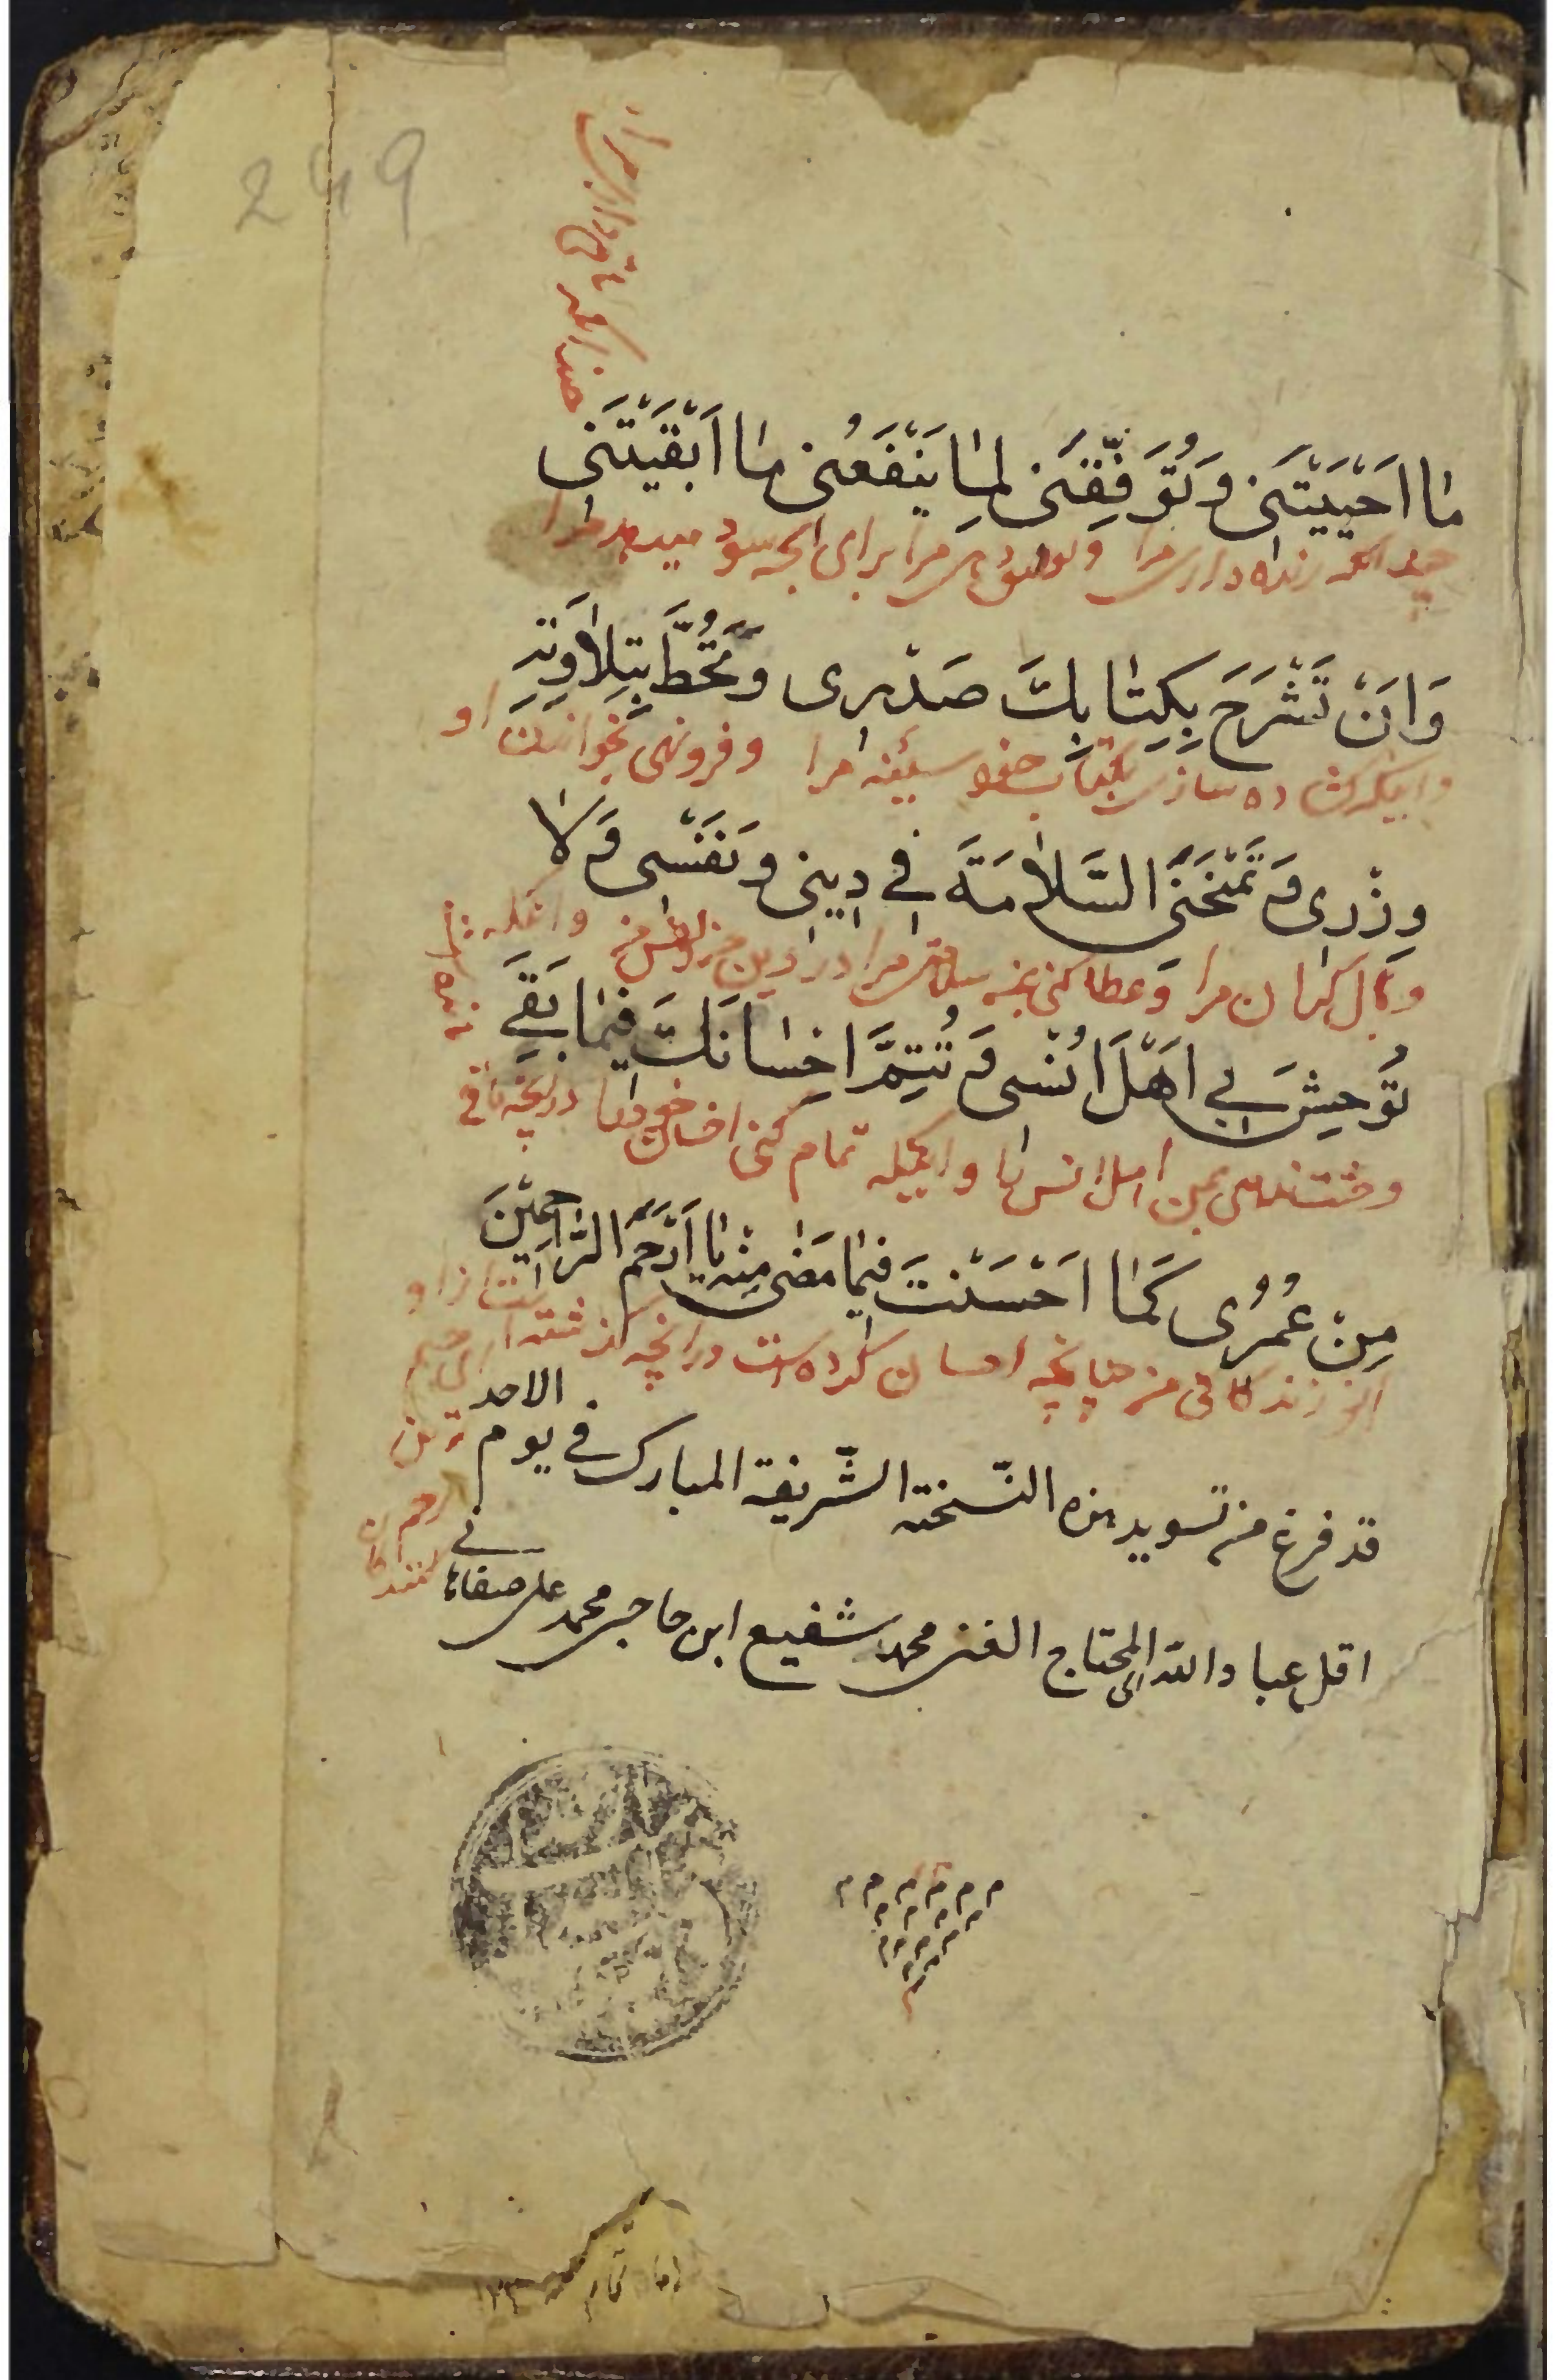 249
چندانکه باقی داری مرا
مٰا اَحْیَیْتَنی وَ تُوَفِّقَنی لِمٰا یَنْفَعُنی مٰا اَبْقَیْتَنی
چندانکه زنده داری مرا و توفیق دهی مرا برای انچه سود میدهد مرا
وَ اَنْ تَشْرَحَ بِکِتٰابِكَ صَدْری وَ تَحُطَّ بِتِلاٰوَتِهِ
و اینکه کشاده سازی بکتاب خود سینه مرا و فرونهی بخواندن او
وِزْری وَ تَمْنَحَنِی السَّلاٰمَةَ فی دینی وَ نَفْسی وَ لاٰ
وبال کران مرا و عطا کنی سلامتی مرا در دین من و نفس من و انکه
تُوحِشَ بی اَهْلَ اُنْسی وَ تُتِمَّ اِحْسٰانَكَ فیمٰا بَقِیَ
وحشت ندهی بمن اهل انس را و اینکه تمام کنی احسان خود را در انچه باقی
مِنْ عُمُری کَمٰا اَحْسَنْتَ فیمٰا مَضٰی مِنْهُ یٰا اَرْحَمَ الرّٰاحِمینَ
از زندکانی من چنانچه احسان کرده است در انچه کذشته است از او
ترین
رحم کنندکان
قد فرغ من تسوید هذه النّسخته الشّریفة المبارک فی یوم الاحد
اقل عباد الله المحتاج الی الغنی محمد شفیع ابن حاجی محمد علی
م م م م م م
م م م م
م م م م
م م
م